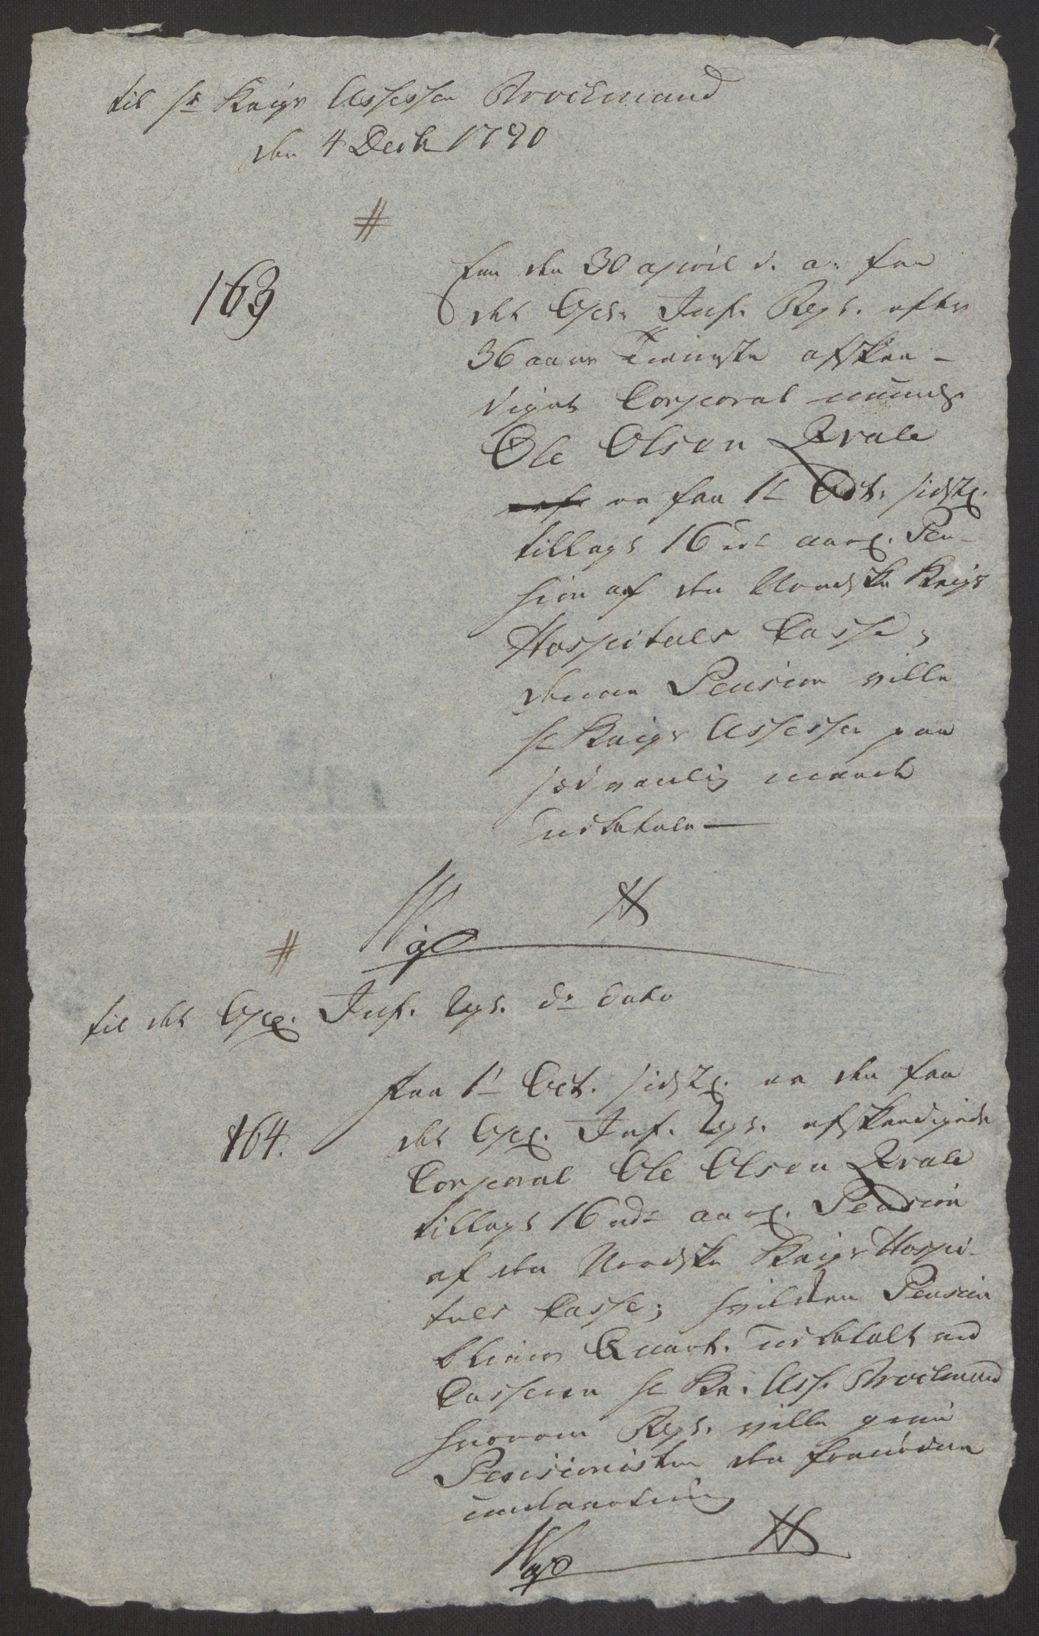 til Hr Krigs Assessor Brockmand
den 4 Decbr 1790
#
163
Fra den 30 april d. a. fra
det Opl. Inf. Regt. efter
36 aars Tieneste afskee-
diget Corporal navnl.
Ole Olsen Qvale
er fra 1t Oct. sidstl.
tillagt 16 rdr aarl. Pen-
sion af den Norske Krigs
Hospitals Casse,
denne Pension ville
Hr Krigs Assessor paa
sædvanlig maade
udbetale
#
til det Opl. Inf. Regt. Do Dato
164.
Fra 1t Oct. sidstl. er den fra
det Opl. Inf. Regt. afskeedigede
Corporal Ole Olsen Qvale
tillagt 16 rdr aarl. Pension
af den Norske Krigs Hospi-
tals Casse; hvilken Pension
bliver Qvart. udbetalt ved
Casserer Hr Kr. Ass. Brockmand
hvorom Regt. ville give
Pensionisten den fornødne
underretning